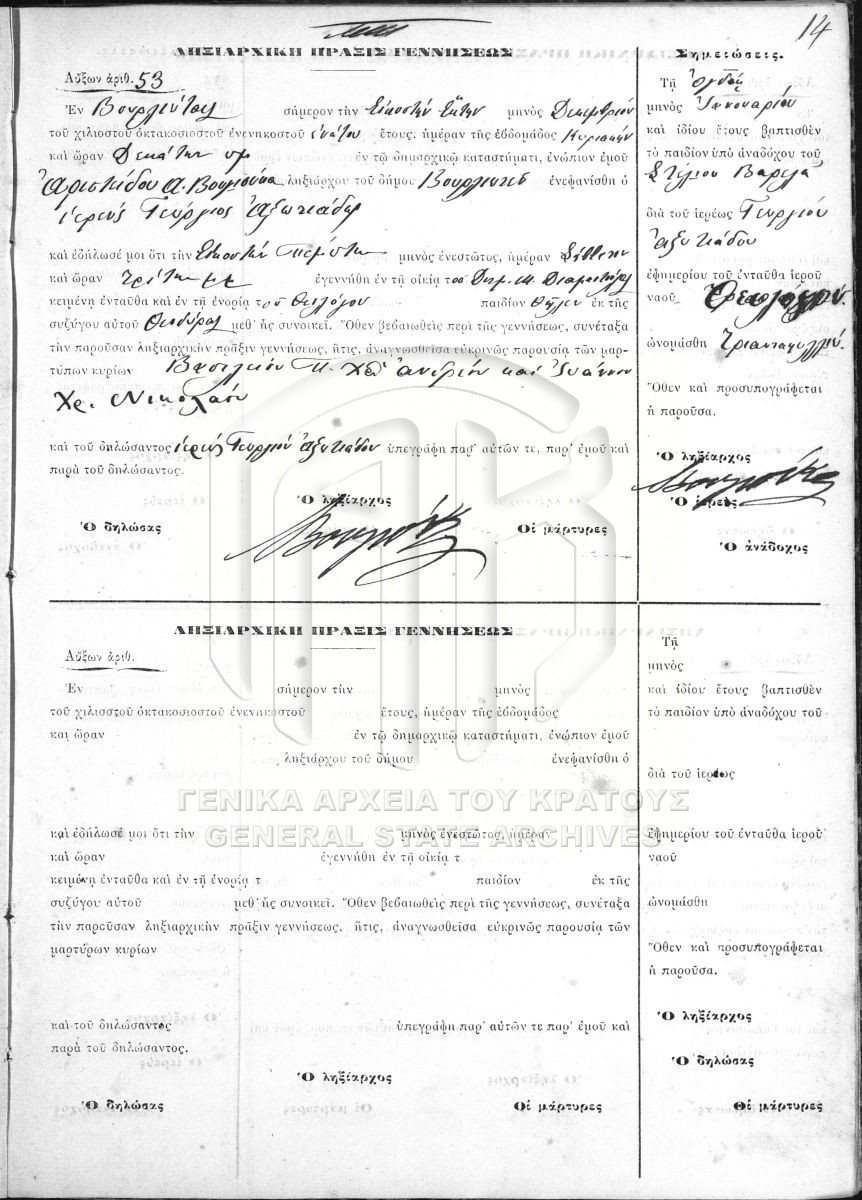 14
ΛΗΞΙΑΡΧΙΚΗ ΠΡΑΞΙΣ ΓΕΝΝΗΣΕΩΣ
Αὔξων ἀριθ. 53
Ἐν Βουρλιώταις σήμερον τὴν Εἰκοστὴν Ἕκτην μηνὸς Δεκεμβρίου
τοῦ χιλιοστοῦ ὀκτακοσιοστοῦ ἐνενηκοστοῦ ἐνάτου ἔτους, ἡμέραν τῆς ἑβδομάδος Κυριακὴν
καὶ ὥραν Δεκάτην πμ ἐν τῷ δημαρχικῷ καταστήματι, ἐνώπιον ἐμοῦ
Ἀριστείδου Α. ληξιάρχου τοῦ δήμου ἐνεφανίσθη ὁ
ἱερεὺς Γεώργιος
καὶ ἐδήλωσέ μοι ὅτι τὴν Εἰκοστὴν Πέμπτην μηνὸς ἐνεστῶτος, ἡμέραν Σάββατον
καὶ ὥραν τρίτην μμ ἐγεννήθη ἐν τῇ οἰκίᾳ τοῦ Δημ. Μ.
κειμένῃ ἐνταῦθα καὶ ἐν τῇ ἐνορίᾳ τοῦ Θεολόγου παιδίον θῆλυ ἐκ τῆς
συζύγου αὐτοῦ Θεοδώρας μεθ' ἧς συνοικεῖ. Ὅθεν βεβαιωθεὶς περὶ τῆς γεννήσεως, συνέταξα
τὴν παροῦσαν ληξιαρχικὴν πρᾶξιν γεννήσεως, ἥτις, ἀναγνωσθεῖσα εὐκρινῶς παρουσίᾳ τῶν μαρ-
τύπων κυρίων Βασιλείου καὶ Ἰωάννου
Χρ. Νικολάου
καὶ τοῦ δηλώσαντος ἱερεὺς Γεωργίου ὑπεγράφη παρ' αὐτῶν τε, παρ' ἐμοῦ καὶ
παρὰ τοῦ δηλώσαντος.
Ὁ ληξίαρχος
Ὁ δηλώσας Οἱ μάρτυρες
Σημειώσεις.
Τῇ Ὀγδόῃ
μηνὸς Ἰανουαρίου
καὶ ἰδίου ἔτους βαπτισθὲν
τὸ παιδίον ὑπὸ ἀναδόχου τοῦ
Στελίου Βαρελᾶ
διὰ τοῦ ἱερέως Γεωργίου
ἐφημερίου τοῦ ἐνταῦθα ἱεροῦ
ναοῦ
ὠνομάσθη
Ὅθεν καὶ προσυπογράφεται
ἡ παροῦσα.
Ὁ ληξίαρχος
Ὁ ἱερεὺς
Ὁ ἀνάδοχος
ΛΗΞΙΑΡΧΙΚΗ ΠΡΑΞΙΣ ΓΕΝΝΗΣΕΩΣ
Αὔξων ἀριθ.
Ἐν σήμερον τὴν μηνὸς
τοῦ χιλιοστοῦ ὀκτακοσιοστοῦ ἐνενηκοστοῦ ἔτους, ἡμέραν τῆς ἑβδομάδος
καὶ ὥραν ἐν τῷ δημαρχικῷ καταστήματι, ἐνώπιον ἐμοῦ
ληξιάρχου τοῦ δήμου ἐνεφανίσθη ὁ
ΓΕΝΙΚΑ ΑΡΧΕΙΑ ΤΟΥ ΚΡΑΤΟΥΣ
GENERAL STATE ARCHIVES
καὶ ἐδήλωσέ μοι ὅτι τὴν μηνὸς ἐνεστῶτος, ἡμέραν
καὶ ὥραν ἐγεννήθη ἐν τῇ οἰκίᾳ τ
κειμένῃ ἐνταῦθα καὶ ἐν τῇ ἐνορίᾳ τ παιδίον ἐκ τῆς
συζύγου αὐτοῦ μεθ' ἧς συνοικεῖ. Ὅθεν βεβαιωθεὶς περὶ τῆς γεννήσεως, συνέταξα
τὴν παροῦσαν ληξιαρχικὴν πρᾶξιν γεννήσεως. ἥτις, ἀναγνωσθεῖσα εὐκρινῶς παρουσίᾳ τῶν
μαρτύρων κυρίων
καὶ τοῦ δηλώσαντος ὑπεγράφη παρ' αὐτῶν τε παρ' ἐμοῦ καὶ
παρὰ τοῦ δηλώσαντος.
Ὁ ληξίαρχος
Ὁ δηλώσας Οἱ μάρτυρες
Τῇ
μηνὸς
καὶ ἰδίου ἔτους βαπτισθὲν
τὸ παιδίον ὑπὸ ἀναδόχου τοῦ
διὰ τοῦ ἱερέως
ἐφημερίου τοῦ ἐνταῦθα ἱεροῦ
ναοῦ
ὠνομάσθη
Ὅθεν καὶ προσυπογράφεται
ἡ παροῦσα.
Ὁ ληξίαρχος
Ὁ δηλώσας
Οἱ μάρτυρες